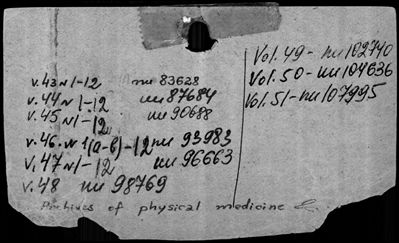 v.43 N1-12 nu 83628
v.44 N1-12 nu 87684
v.45 N1-12 nu 90688
v.46. N 1(a-b)-12 nu 93983
v.47 N1-12 nu 96663
v.48 nu 98769
Vol. 49 - nu 102740
Vol. 50 - nu 104636
Vol. 51 - nu 107995
Archives of physical medicine &